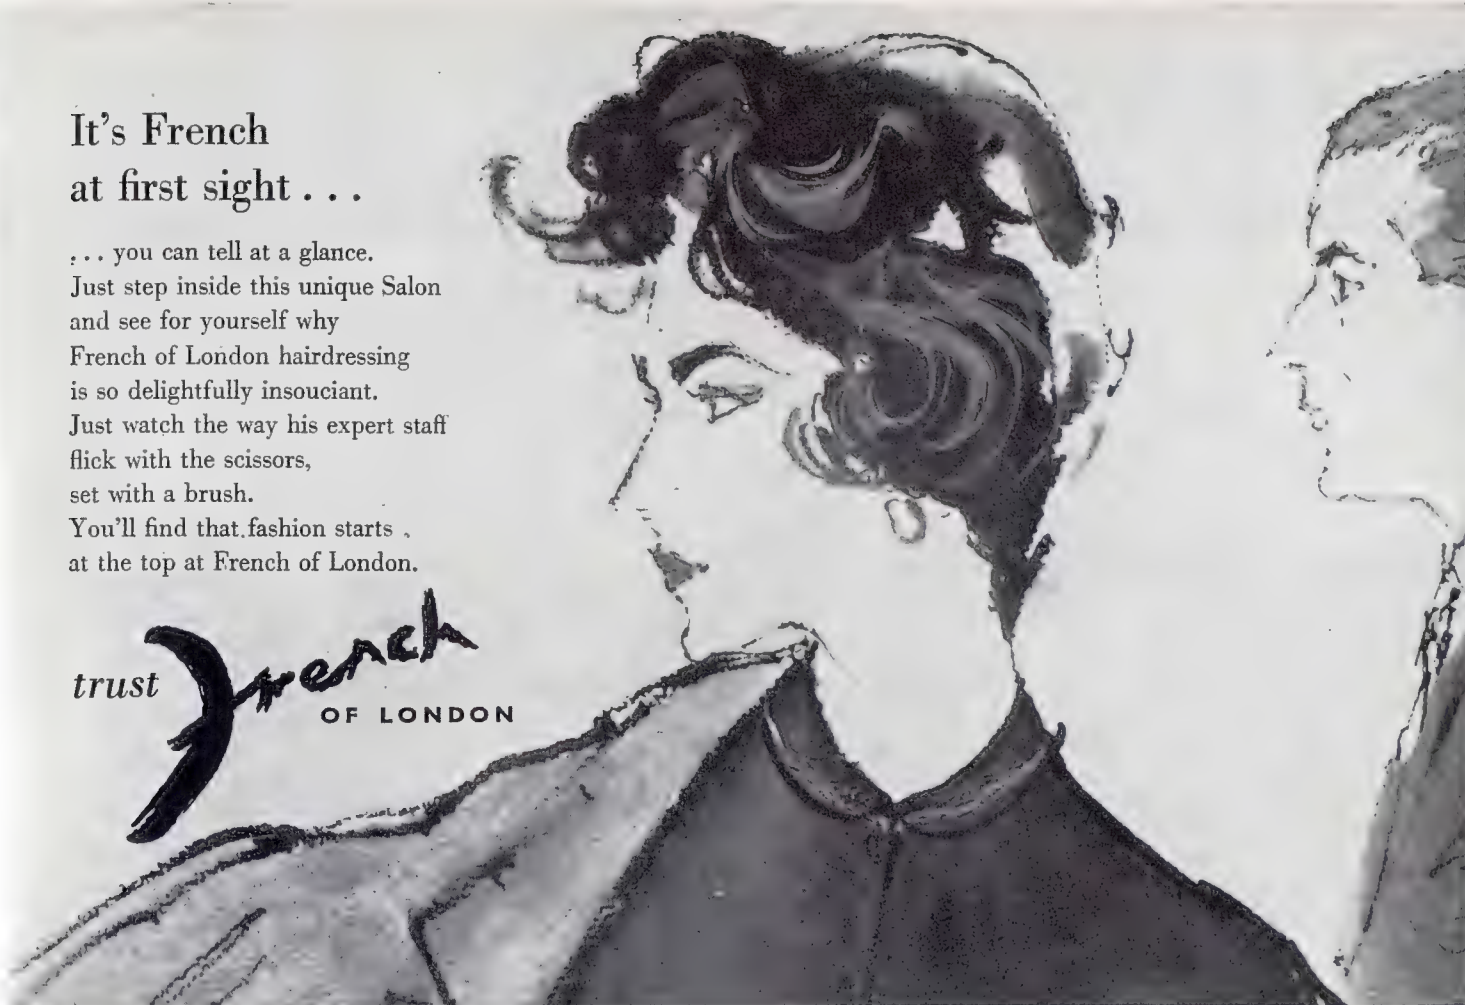 It's French
at first sight . . .
. . . you can tell at a glance.
Just step inside this unique Salon
and see for yourself why
French of London hairdressing
is so delightfully insouciant.
Just watch the way his expert staff
flick with the scissors,
set with a brush.
You'll find that fashion starts
at the top at French of London.
trust French
OF LONDON